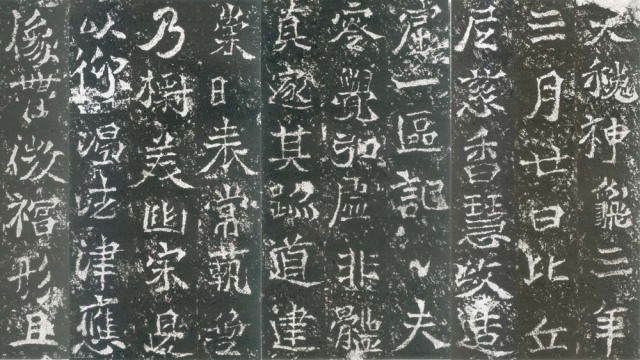 大魏神龜三年
三月廿日比丘
尼慈香慧政造
窟一區記〻夫
零覺弘虛非體
真邃其跡道建
崇日表常
乃標美幽宗是
以仰渴法津應
像微福形且